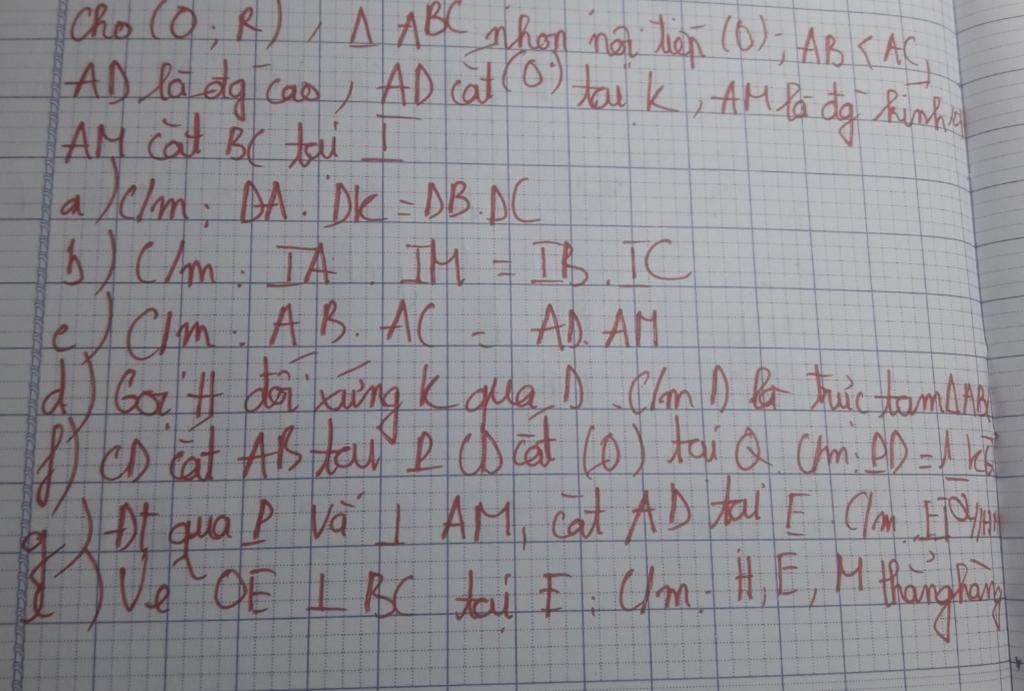 Cho (O; R), Δ ABC nhọn nội tiếp (O); AB < AC,
AD là đg cao, AD cắt (O) tại K, AM là đg kính
AM cắt BC tại I
a) C/m: DA. DK = DB. DC
b) C/m: IA. IM = IB. IC
c) C/m: AB. AC = AD. AM
d) Gọi H đối xứng K qua D. C/m D là trực tâm Δ AB
f) CD cắt AB tại P CD cắt (O) tại Q. C/m: PD = 1
g) Đt qua P và ⊥ AM, cắt AD tại E C/m
Vẽ OE ⊥ BC tại F: C/m: H, E, M thẳng hàng